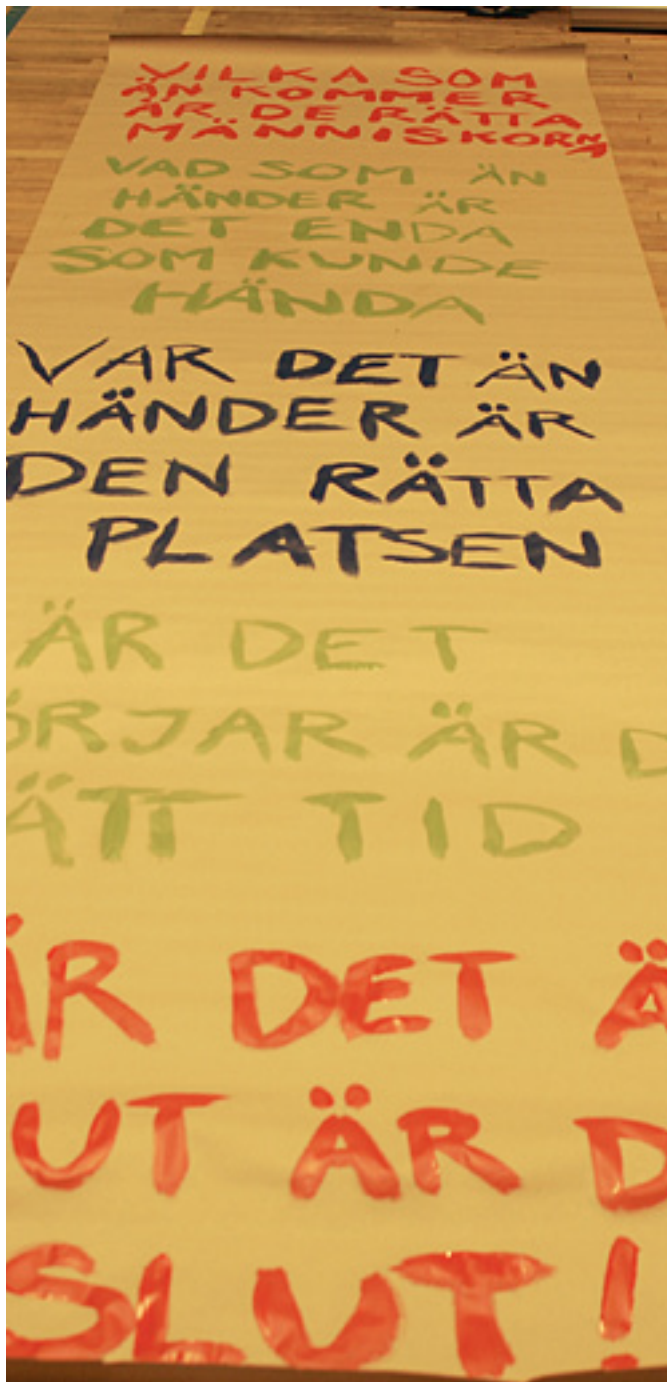 VILKA SOM
ÄN KOMMER
ÄR DE RÄTTA
MÄNNISKORNA
VAD SOM ÄN
HÄNDER ÄR
DET ENDA
SOM KUNDE
HÄNDA
VAR DET ÄN
HÄNDER ÄR
DEN RÄTTA
PLATSEN
ÄR DET
ÖRJAR ÄR D
ÄTT TID
ÄR DET Ä
UT ÄR D
SLUT!